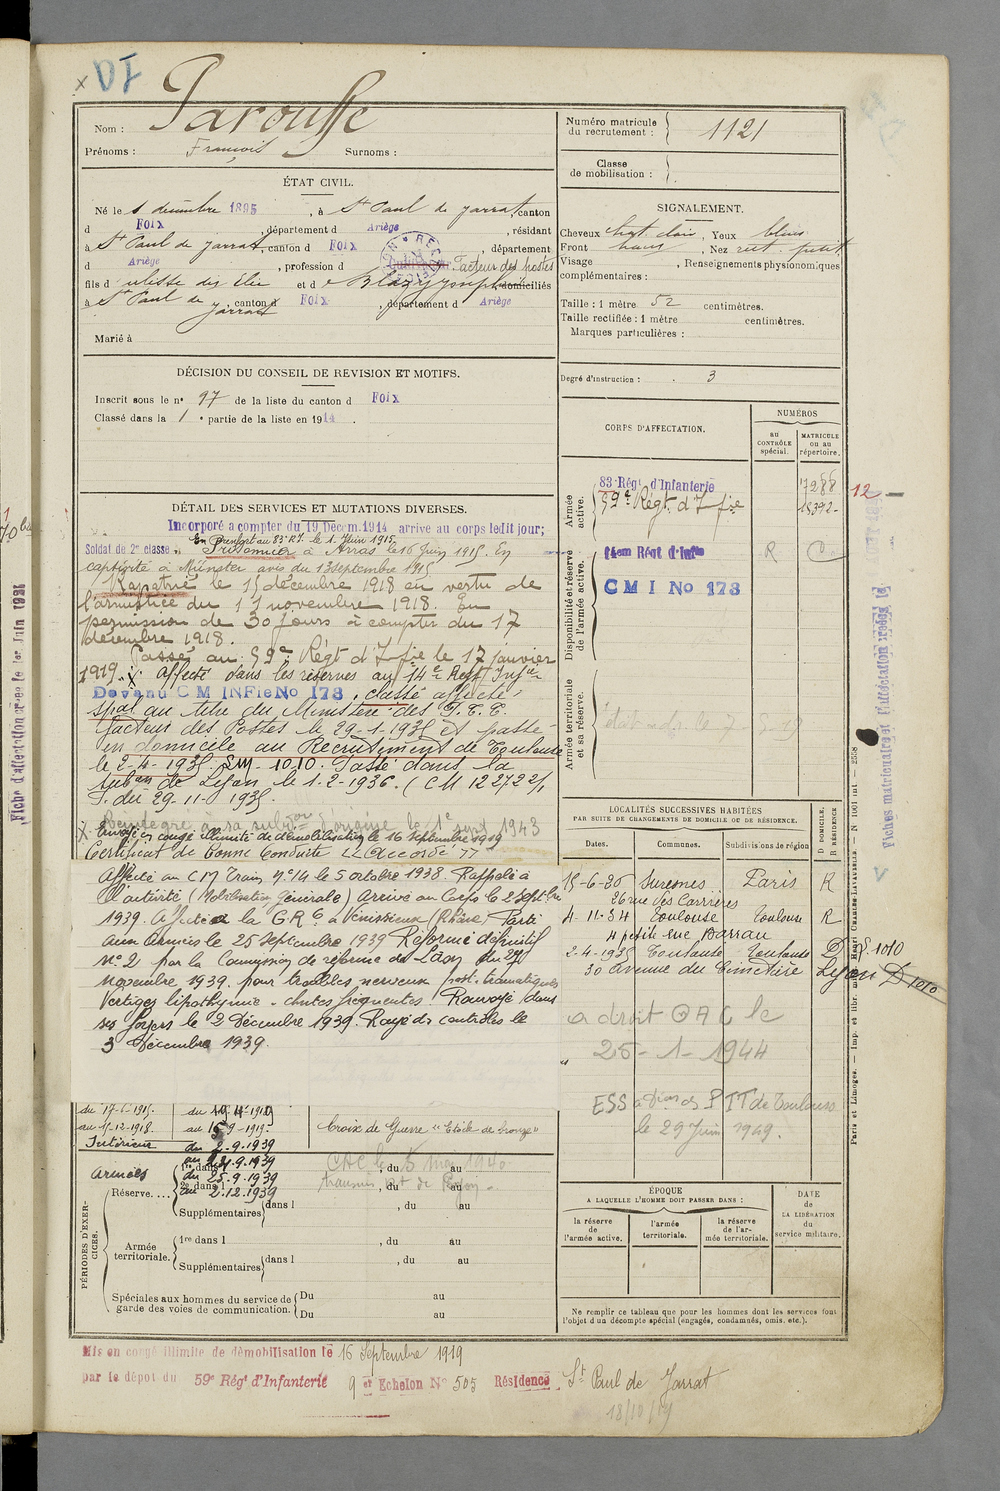 x DI
Nom : Parousse
Prénoms : François Surnoms :
ÉTAT CIVIL.
Né le 1 décembre 1895, à St Paul de Jarrat, canton
d Foix, département d Ariège, résidant
à St Paul de Jarrat, canton d Foix, département
d Ariège, profession d Facteur des postes
fils d et d domiciliés
à St Paul de Jarrat, canton d Foix, département d Ariège
Marié à
DÉCISION DU CONSEIL DE REVISION ET MOTIFS.
Inscrit sous le n° 97 de la liste du canton d Foix
Classé dans la 1e partie de la liste en 1914.
DÉTAIL DES SERVICES ET MUTATIONS DIVERSES.
Incorporé a compter du 19 Décem. 1914 arrive au corps ledit jour;
En Renfort au 83e R.I. le 1 Juin 1915
Soldat de 2e classe, Prisonnier à Arras le 16 Juin 1915. En
captivité à Münster avis du 13 septembre 1915
Rapatrié le 15 décembre 1918 en vertu de
l'armistice du 11 novembre 1918. En
permission de 30 jours à compter du 17
décembre 1918.
Passé au 59e Régt d'Infie le 17 janvier
1919. X Affecté dans les réserves au 14e Regt Infie
Devenu C M INFie No 173, classé affecté
spal au titre du Ministère des P.T.T.
facteur des Postes le 29-1-1935 et passé
en domicile au Recrutement de Toulouse
le 2-4-1935. Sm. 1010. Passé dans la
subon de Lyon le 1-2-1936. (CM 12272 2/1
P. du 29-11-1935.
Réintégré à sa subon d'origine le 1e 1943
X Envoyé en congé illimité de démobilisation le 16 septembre 1919
Certificat de Bonne Conduite "Accordé"
Affecté au CM Train No 14 le 5 octobre 1938. Rappelé à
l'activité (Mobilisation Générale) Arrivé au Corps le 2 Septbre
1939. Affecté à la G.R. à Vénissieux (Rhône) Parti
aux Armées le 25 Septembre 1939 Réformé définitif
no 2 par la Commission de réforme de Laon du 27
novembre 1939. pour troubles nerveux post-traumatiques
Vertiges lipothymie - chutes fréquentes. Renvoyé dans
ses foyers le 2 Décembre 1939. Rayé des contrôles le
3 Décembre 1939.
du 17-6-1915. du 19-4-1919
au 15-12-1918. au 16-9-1919. Croix de Guerre "Etoile de bronze"
Intérieur du 2.9.1939
au 24.9.1939
Armées du 25.9.1939
au 2.12.1939
CAC le 5 mai 1940
PÉRIODES D'EXERCICES.
Réserve.... 1re dans l , du au
2e dans l , du au
Supplémentaires dans l , du au
Armée territoriale. 1re dans l , du au
Supplémentaires dans l , du au
Spéciales aux hommes du service de garde des voies de communication. Du au
Du au
Mis en congé illimité de démobilisation le 16 Septembre 1919
par le dépot du 59e Régt d'Infanterie 9 et Echelon No 505 Résidence St Paul de Jarrat
18/10/19
Numéro matricule du recrutement : 1121
Classe de mobilisation :
SIGNALEMENT.
Cheveux chat. clair, Yeux bleus
Front haut, Nez rect. petit
Visage , Renseignements physionomiques
complémentaires :
Taille : 1 mètre 52 centimètres.
Taille rectifiée : 1 mètre centimètres.
Marques particulières :
Degré d'instruction : 3
CORPS D'AFFECTATION.
NUMÉROS
au CONTRÔLE spécial.
MATRICULE ou au répertoire.
Armée active.
83 Régt d'Infanterie 7288 12
59e Régt d'Infie 18392
Disponibilité et réserve de l'armée active.
14em Régt d'Infie R
C M I No 173
Armée territoriale et sa réserve.
LOCALITÉS SUCCESSIVES HABITÉES
PAR SUITE DE CHANGEMENTS DE DOMICILE OU DE RÉSIDENCE.
Dates. Communes. Subdivisions de région D DOMICILE. R RÉSIDENCE
15-6-26 Suresnes Paris R
26 rue des Carrières
4-11-34 Toulouse Toulouse R
4 petite rue Barrau
2-4-1935 Toulouse Toulouse D S. 1010
30 avenue du Cimetière Lyon D 1010
a droit OAC le
25-1-1944
le 29 Juin 1949.
ÉPOQUE
A LAQUELLE L'HOMME DOIT PASSER DANS :
la réserve de l'armée active.
l'armée territoriale.
la réserve de l'armée territoriale.
DATE de LA LIBÉRATION du service militaire.
Ne remplir ce tableau que pour les hommes dont les services font
l'objet d'un décompte spécial (engagés, condamnés, omis, etc.).
Paris et Limoges. — Imp. et libr. milit. Henri CHARLES-LAVAUZELLE. — N° 1001 int — 2558